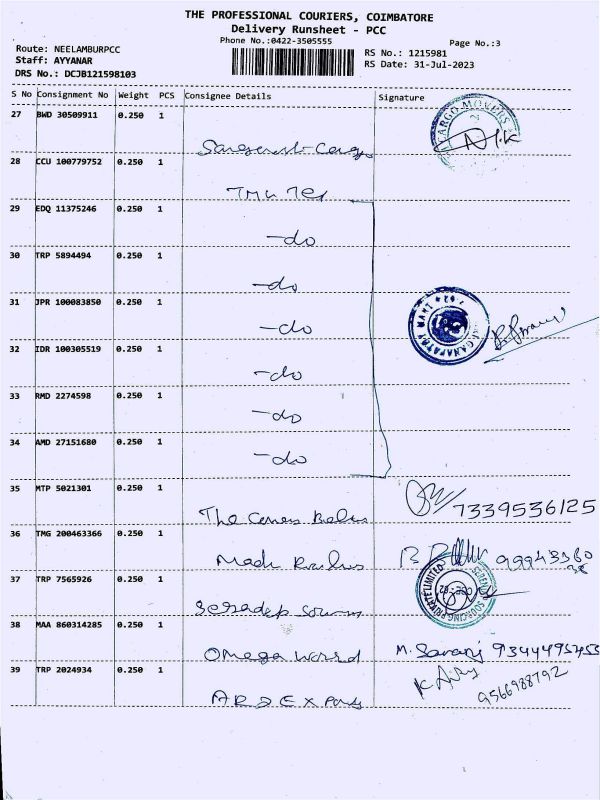 THE PROFESSIONAL COURIERS, COIMBATORE
Delivery Runsheet - PCC
Phone No.:0422-3505555
Page No.:3
Route: NEELAMBURPCC
RS No.: 1215981
Staff: AYYANAR
RS Date: 31-Jul-2023
DRS No.: DCJB121598103
S No Consignment No Weight PCS Consignee Details Signature
27 BWD 30509911 0.250 1
CARGO MOVERS
28 CCU 100779752 0.250 1
29 EDQ 11375246 0.250 1
-do
30 TRP 5894494 0.250 1
-do
31 JPR 100083850 0.250 1
-do
GANAPATHY
32 IDR 100305519 0.250 1
-do
33 RMD 2274598 0.250 1
-do
34 AMD 27151680 0.250 1
-do
35 MTP 5021301 0.250 1
The 7339536125
36 TMG 200463366 0.250 1
37 TRP 7565926 0.250 1
SOURCING PRIVATE LIMITED
38 MAA 860314285 0.250 1
Omega World M. Saranj
39 TRP 2024934 0.250 1
9566988792